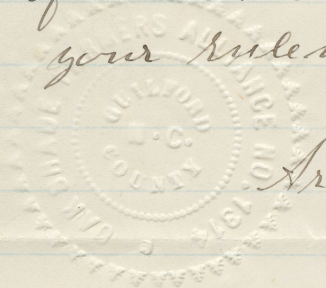 your rules
OAK SHADE FARMERS ALLIANCE NO. 1374
GUILFORD
N.C.
COUNTY